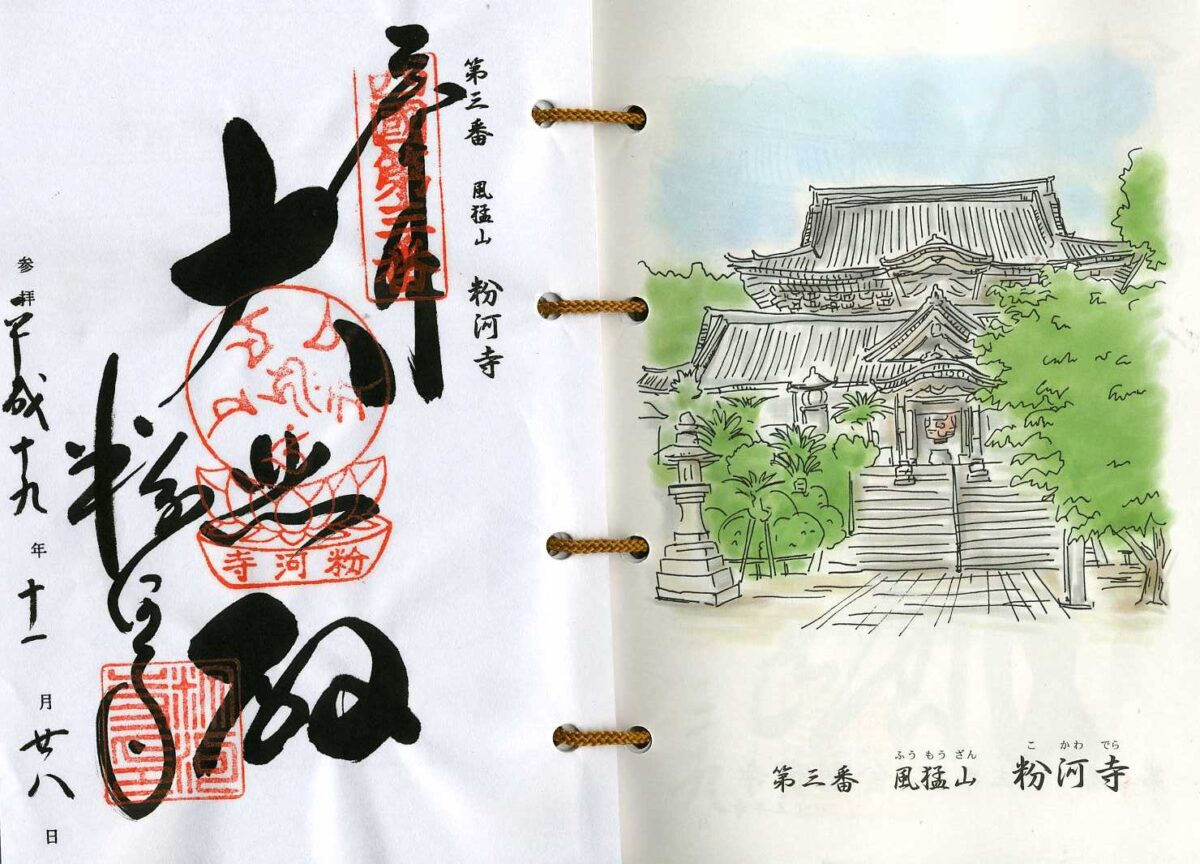 第三番 風猛山 粉河寺
奉拝
西國第三番
大悲殿
粉河寺
粉河寺
参拝 平成十九年十一月廿八日
ふうもうざん こかわでら
第三番 風猛山 粉河寺